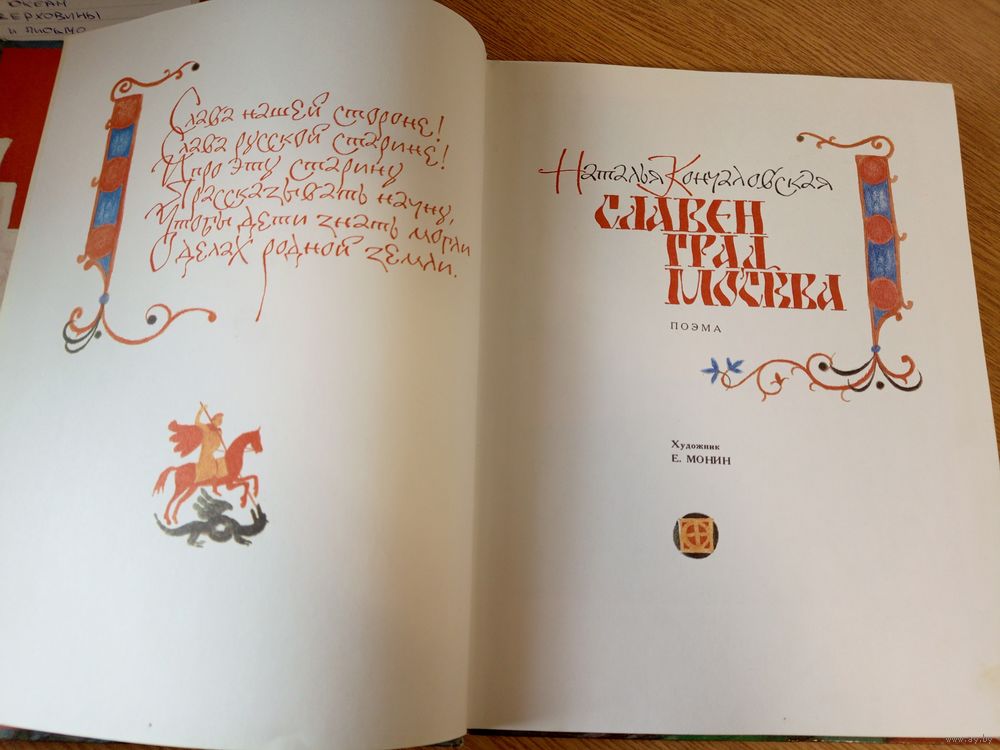 ОКЕАН
ВЕРХОВИНЫ
И ПИСЬМО
Слава нашей стороне!
Слава русской старине!
И про эту старину
Я рассказывать начну,
Чтобы дети знать могли
О делах родной земли.
Наталья Кончаловская
СЛАВЕН
ГРАД
МОСКВА
ПОЭМА
Художник
Е. МОНИН
www.ay.by